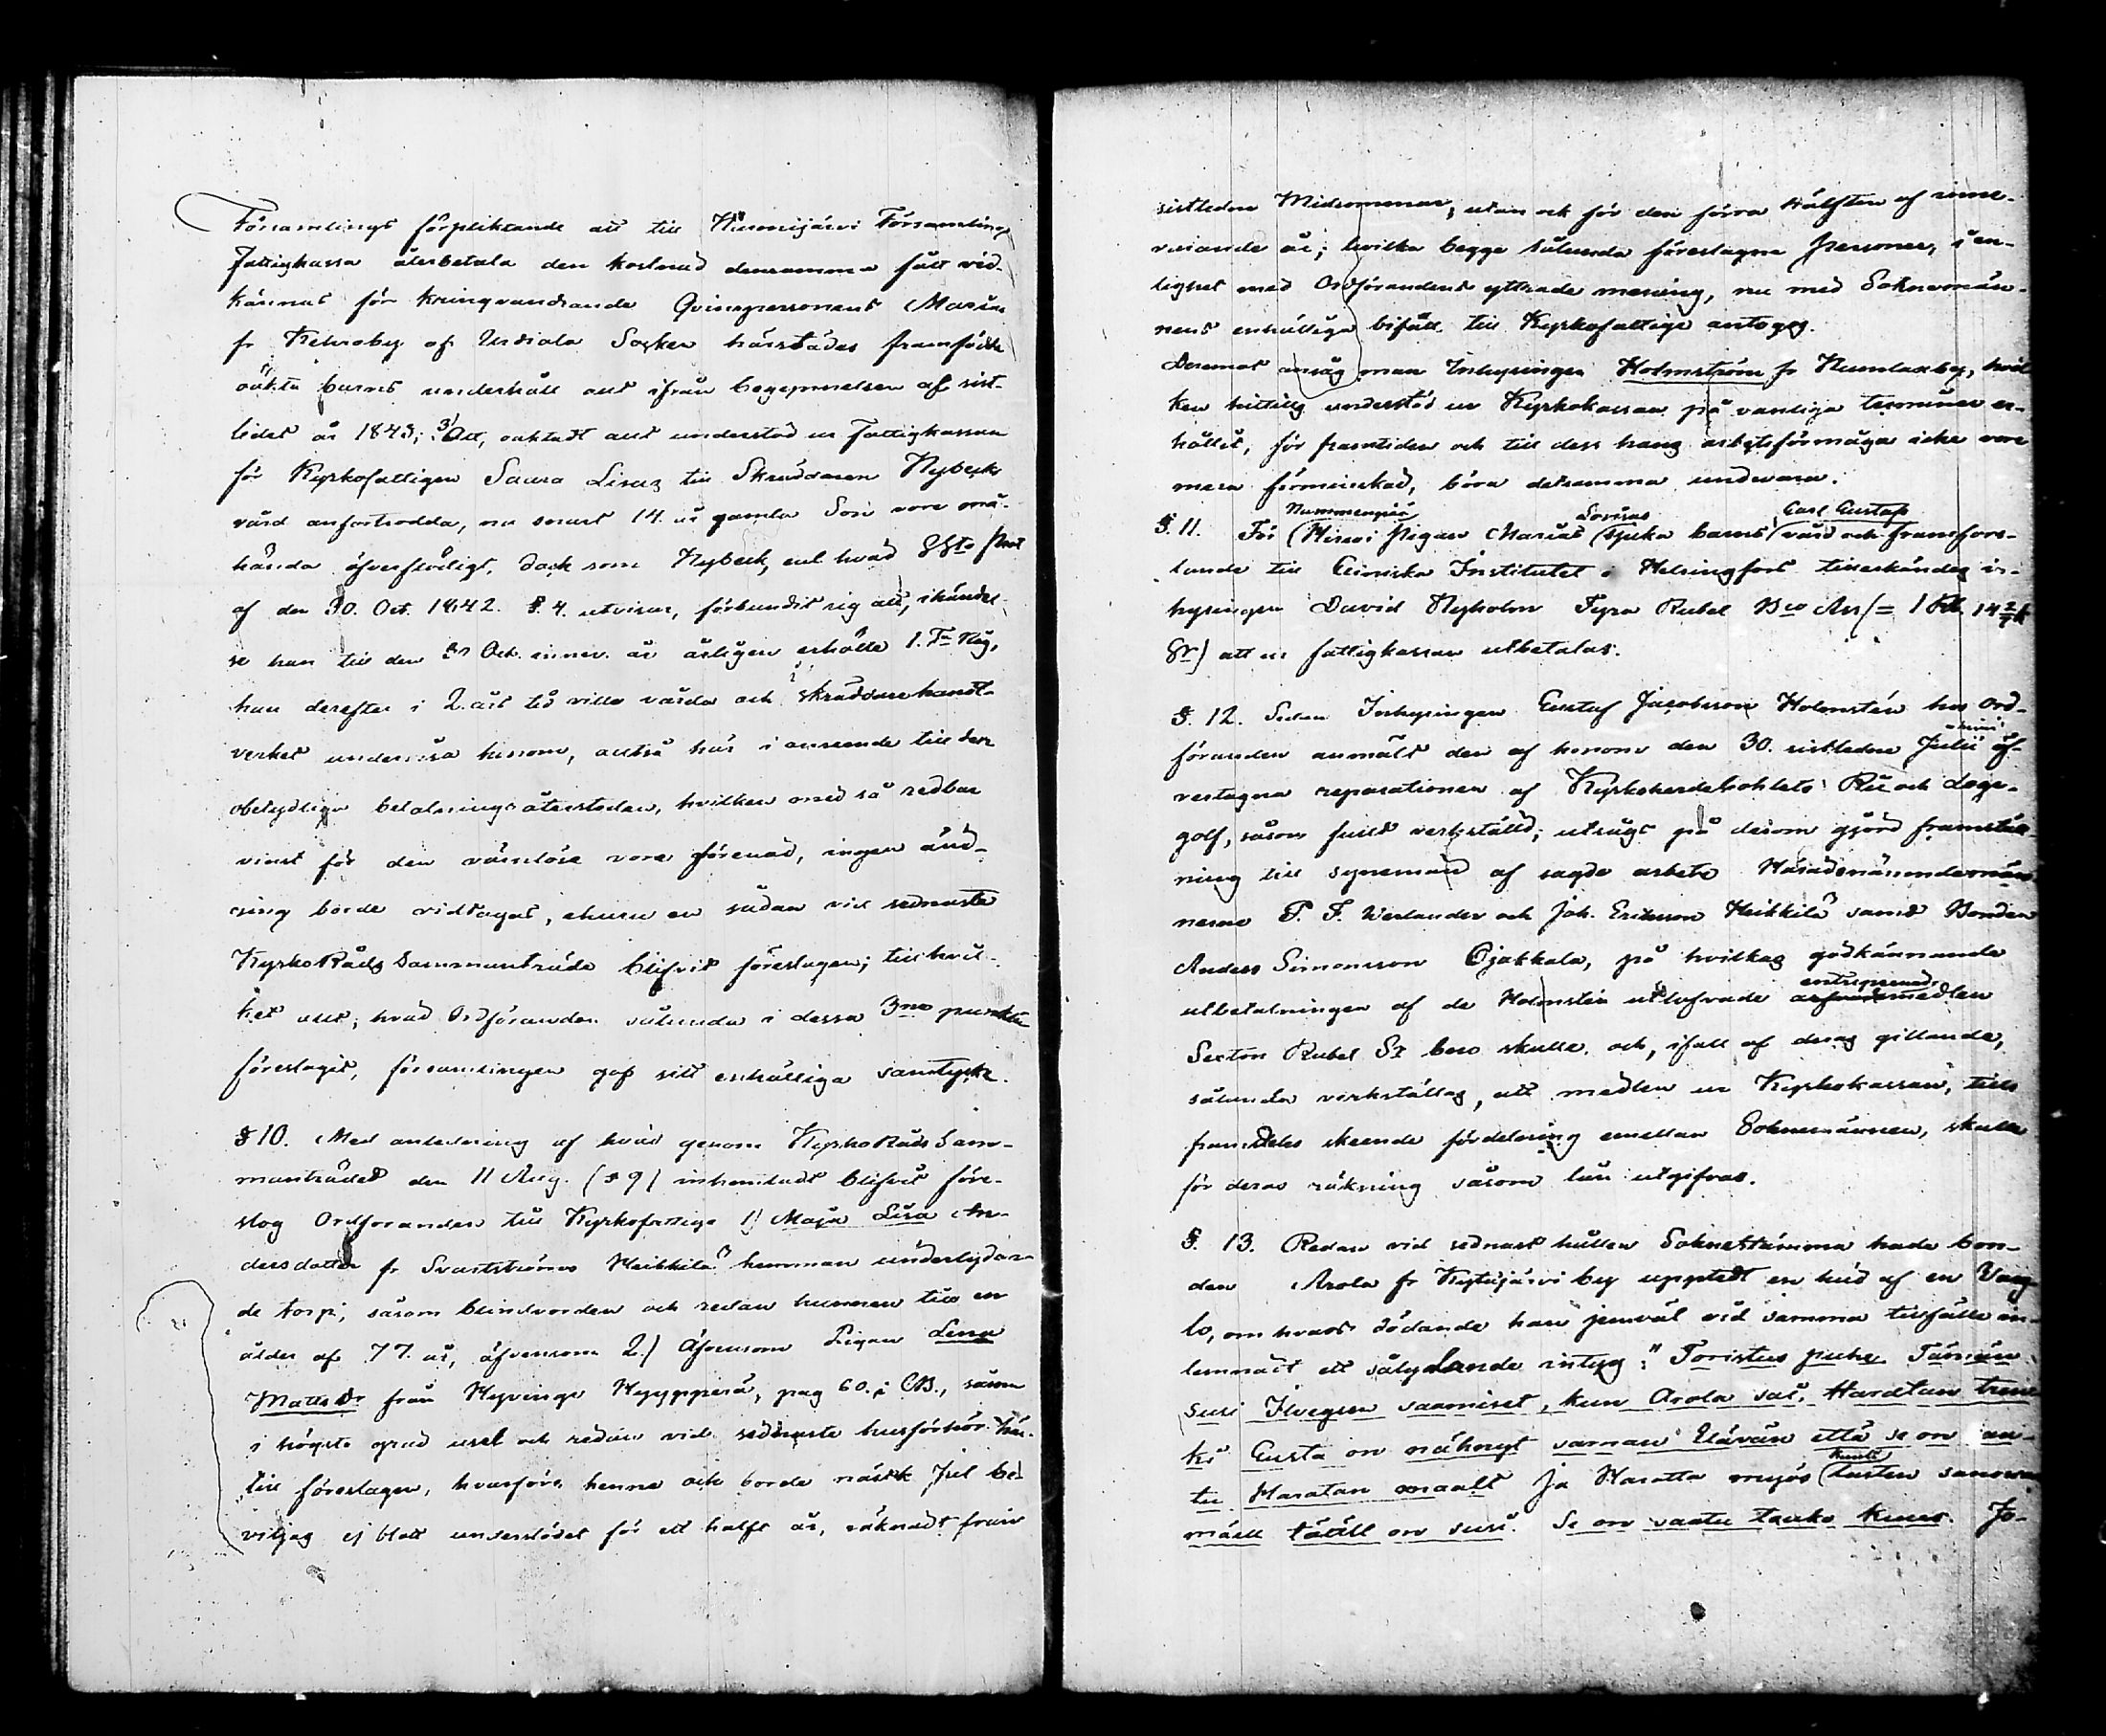 Församlings förpliktande att till Nurmijärvi Församlings
Fattigkassa återbetala den kostnad densamma fått vid-
kännas för kringvandrande Qvinspersonens Marias
fr by af Urdiala Socken härstädes framfödde
oäkta barns underhåll allt ifrån begynnelsen af sist-
lidet år 1843; 3/ Att, oaktadt allt understöd ur Fattigkassan
för Kyrkofattigen Saara Lisas till Skräddaren Nybecks
vård anförtrodda, nu snart 14 år gamla Son vore
hända öfverflödigt, dock som Nybeck, enl hvad Prot
af den 30. Oct. 1842. §. 4. utvisar, förbundit sig att, ihändel-
se han till den Oct. innev. år årligen erhölle 1. Tn Råg,
han derefter i 2. års tid ville vårda och i skräddarehandt-
verket undervisa honom, alltså här i anseende till den
obetydliga betalningsåterstoden, hvilken med så redbar
vinst för den värnlöse vore förenad, ingen änd-
ring borde vidtagas, ehuru en sådan vid sednaste
KyrkoRåds Sammanträde blifvit föreslagen; till hvil-
ket allt, hvad Ordföranden sålunda i dessa 3ne punkter
föreslagit, församlingen gaf sitt enhälliga samtycke.
§ 10. Med anledning af hvad genom KyrkoRåds Sam-
manträdet den 11 Aug. (§ 9) inhemtadt blifvit före-
slog Ordföranden till Kyrkofattige 1) Maja Lisa An-
dersdotter fr Svartströms Heikkilä hemman underlydan-
de torp, såsom blindvorden och redan hunnen till en
ålder af 77. år, äfvensom 2.) äfvensom Pigan Lena
Mattsdr från Hyvinge Hyyppärä, pag 60. i CB., såsom
i högsta grad usel och redan vid sednaste husförhör här-
till föreslagen, hvarföre henne ock borde nästk Jul be-
viljas ej blott understödet för ett halft år, räknadt från
sistleden Midsommar, utan ock för den förra Hälften af inne-
varande år; hvilka begge sålunda föreslagne personer, i en-
lighet med Ordförandens yttrade mening, nu med Sokneman-
nens enhälliga bifall till Kyrkofattige antogos.
Deremot ansåg man Inhysingen Holmström fr Numlaxby, hvil-
ken hittills understöd ur Kyrkokassan på vanliga terminer er-
hållit, för framtiden och till dess hans arbetsförmåga icke vore
mera förminskad, böra detsamma undvara.
Nummenpää Lovisas Carl Gustaf
§. 11. För Hirvoi Pigan Marias sjuka barns vård och framfors-
lande till Cliniska Institutet i Helsingfors tillerkändes in-
hysingen David Nyholm Fyra Rubel Bco Ass (= 1 Rb. 14 2/7 k
Sr) att ur fattigkassan utbetalas.
§. 12. Sedan Inhysingen Gustaf Jacobsson Holmstén hos Ord-
föranden anmält den af honom den 30. sistledne Julii
vertagna reparationen af Kyrkoherdebohlets Rie och Loge-
golf, såsom fullt verkställd; utsågs på derom gjord framstäl-
ning till synemän af sagde arbete Häradsnämndemän-
nerne F. F. Verlander och Joh. Eriksson Heikkilä samt Bonden
Anders Simonsson Ojakkala, på hvilkas godkännande
entreprenads
utbetalningen af de Holmstén utlofvade medlen
Sexton Rubel Sr bero skulle, och, ifall af deras gillande,
sålunda verkställas, att medlen ur Kyrkokassan, tills
framdeles skeende fördelning emellan Soknemännen, skulle
för deras räkning såsom lån utgifvas.
§. 13. Redan vid sednast hållen Soknestämma hade bon-
den Arola fr Kytäjärvi by upptedt en hud af en Varg
lo, om hvars dödande han jemväl vid samma tillfälle in-
lemnadt ett sålydande intyg: "Toristus puhe Tämän
susi Ilvexen saamiset, kun Arola sai. Haratan
ki Gusta on nähnyt saman Elävän että se on
tu Haratan maalt Ja Haratta myös
mäell täält on susi. Se on saatu kuus Jo-